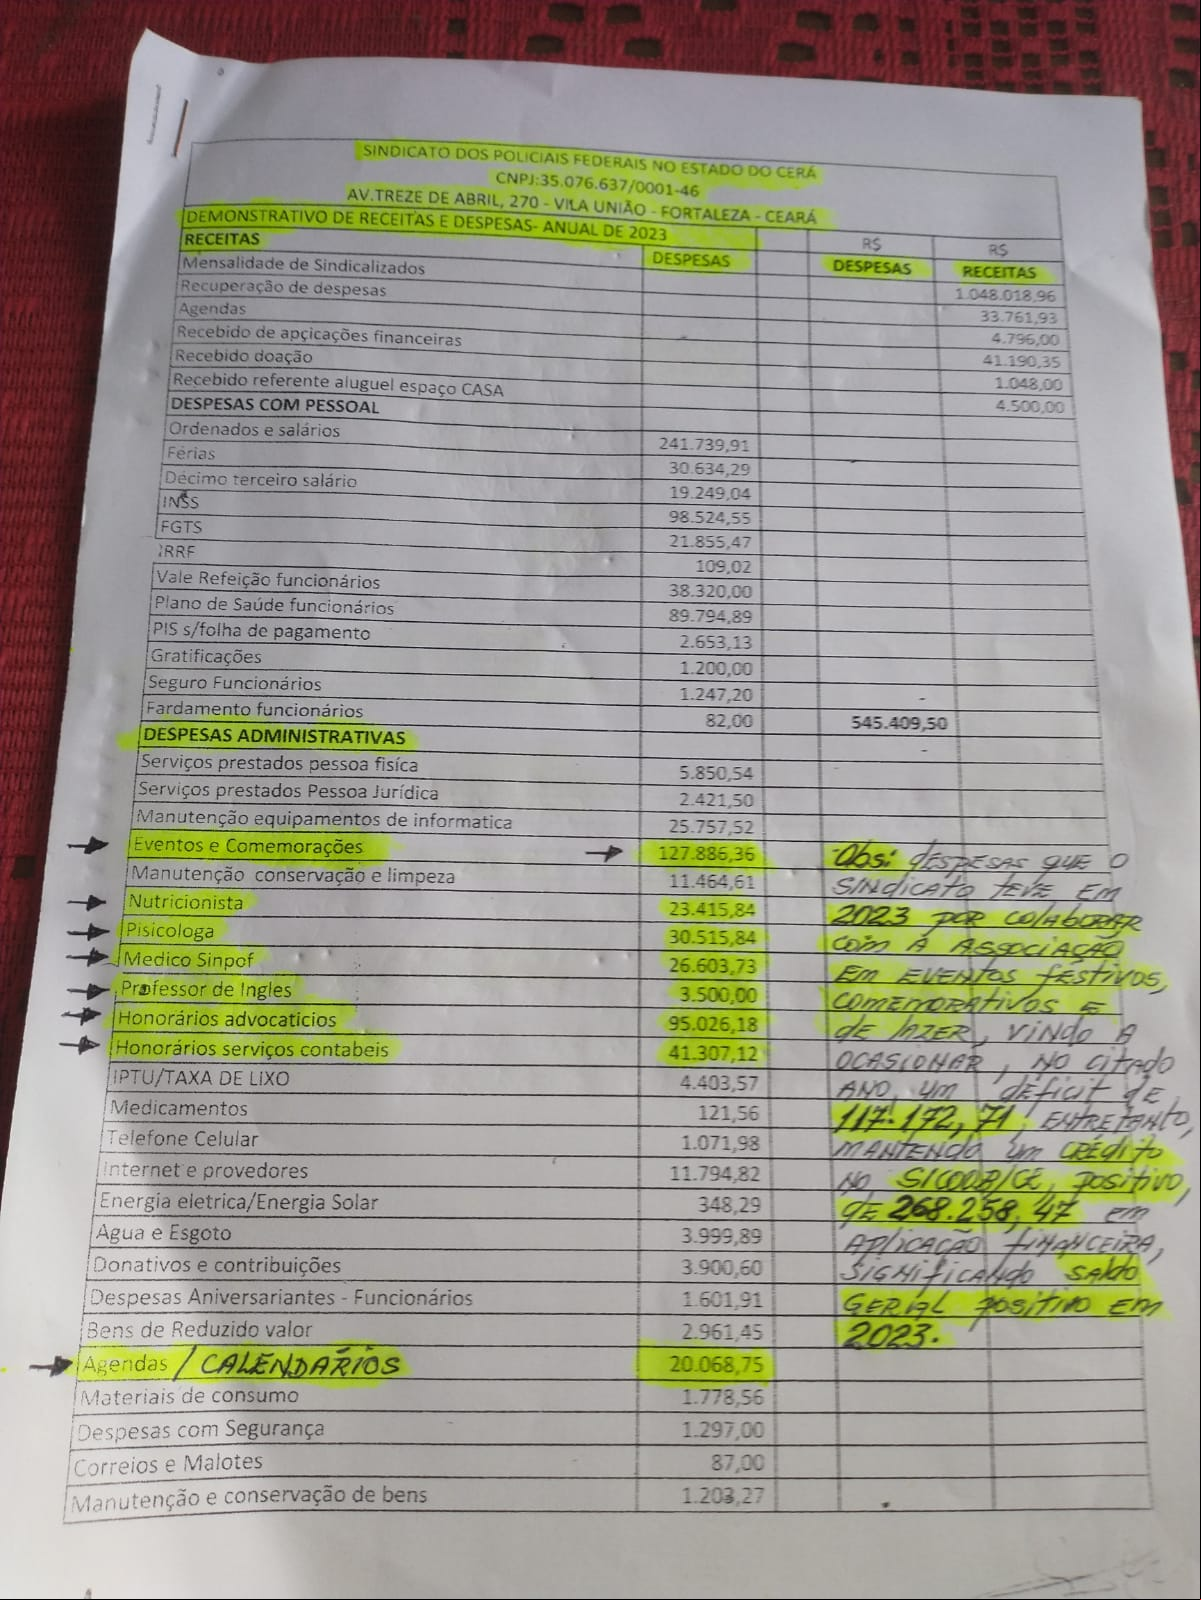 SINDICATO DOS POLICIAIS FEDERAIS NO ESTADO DO CERÁ
CNPJ:35.076.637/0001-46
AV.TREZE DE ABRIL, 270 - VILA UNIÃO - FORTALEZA - CEARÁ
DEMONSTRATIVO DE RECEITAS E DESPESAS- ANUAL DE 2023 R$ R$
RECEITAS DESPESAS DESPESAS RECEITAS
Mensalidade de Sindicalizados 1.048.018,96
Recuperação de despesas 33.761,93
Agendas 4.796,00
Recebido de apçicações financeiras 41.190,35
Recebido doação 1.048,00
Recebido referente aluguel espaço CASA 4.500,00
DESPESAS COM PESSOAL
Ordenados e salários 241.739,91
Férias 30.634,29
Décimo terceiro salário 19.249,04
INSS 98.524,55
FGTS 21.855,47
IRRF 109,02
Vale Refeição funcionários 38.320,00
Plano de Saúde funcionários 89.794,89
PIS s/folha de pagamento 2.653,13
Gratificações 1.200,00
Seguro Funcionários 1.247,20 -
Fardamento funcionários 82,00 545.409,50
DESPESAS ADMINISTRATIVAS -
Serviços prestados pessoa fisíca 5.850,54
Serviços prestados Pessoa Jurídica 2.421,50
Manutenção equipamentos de informatica 25.757,52
Eventos e Comemorações 127.886,36
Manutenção conservação e limpeza 11.464,61
Nutricionista 23.415,84
Pisicologa 30.515,84
Medico Sinpof 26.603,73
Professor de Ingles 3.500,00
Honorários advocaticios 95.026,18
Honorários serviços contabeis 41.307,12
IPTU/TAXA DE LIXO 4.403,57
Medicamentos 121,56
Telefone Celular 1.071,98
Internet e provedores 11.794,82
Energia eletrica/Energia Solar 348,29
Agua e Esgoto 3.999,89
Donativos e contribuições 3.900,60
Despesas Aniversariantes - Funcionários 1.601,91
Bens de Reduzido valor 2.961,45
Agendas / CALENDÁRIOS 20.068,75
Materiais de consumo 1.778,56
Despesas com Segurança 1.297,00
Correios e Malotes 87,00
Manutenção e conservação de bens 1.203,27
Obs: DESPESAS QUE O
SINDICATO TEVE EM
2023 POR COLABORAR
COM A ASSOCIAÇÃO
EM EVENTOS FESTIVOS,
COMEMORATIVOS E
de LAZER, VINDO A
OCASIONAR, NO CITADO
ANO, UM DÉFICIT DE
117.172,71, ENTRETANTO,
MANTENDO UM CRÉDITO
NO SICOOB/CE, POSITIVO,
DE 268.258,47 EM
APLICAÇÃO FINANCEIRA,
SIGNIFICANDO SALDO
GERAL POSITIVO EM
2023.